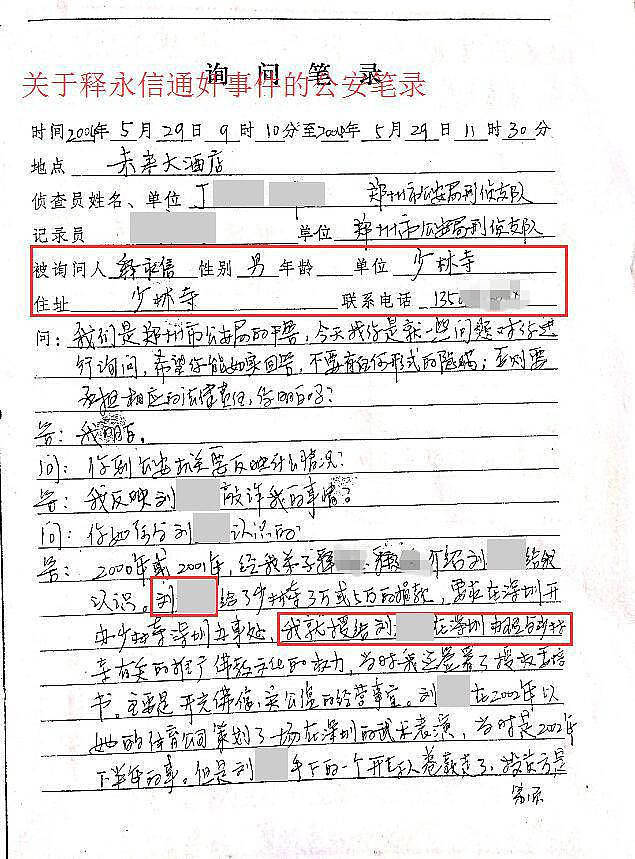 询问笔录
关于释永信通奸事件的公安笔录
时间2004年5月29日9时10分至2004年5月29日11时30分
地点 未来大酒店
侦查员姓名、单位 丁 郑州市公安局刑侦支队
记录员 单位 郑州市公安局刑侦支队
被询问人 释永信 性别 男 年龄 单位 少林寺
住址 少林寺 联系电话 1350
问：我们是郑州市公安局的干警，今天找你是就一些问题对你进
行询问，希望你能如实回答，不要有任何形式的隐瞒；否则要
承担相应的法律责任，你明白吗？
答：我明白。
问：你到公安机关要反映什么情况？
答：我反映刘 敲诈我的事情。
问：你如何与刘 认识的
答：2000年或2001年，经我弟子释 介绍刘 给我
认识。刘 给了少林寺3万或5万的捐款，要求在深圳开
办少林寺深圳办事处，我就授给刘 在深圳办理与少林
寺有关的推广佛教文化的权力，当时我还签署了授权委托
书。主要是开光佛信，实公司的经营事宜。刘 在2002年以
她的体育公司策划了一场在深圳的武术表演，当时是2002年
下半年的事。但是刘 手下的一个开 卷款走了，投资方是